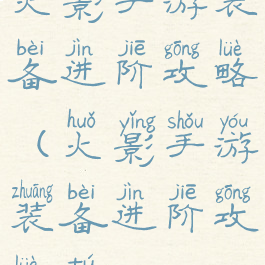 火影手游装
bèi jìn jiē gōng lüè
备进阶攻略
huǒ yǐng shǒu yóu
(火影手游
zhuāng bèi jìn jiē gōng
装备进阶攻